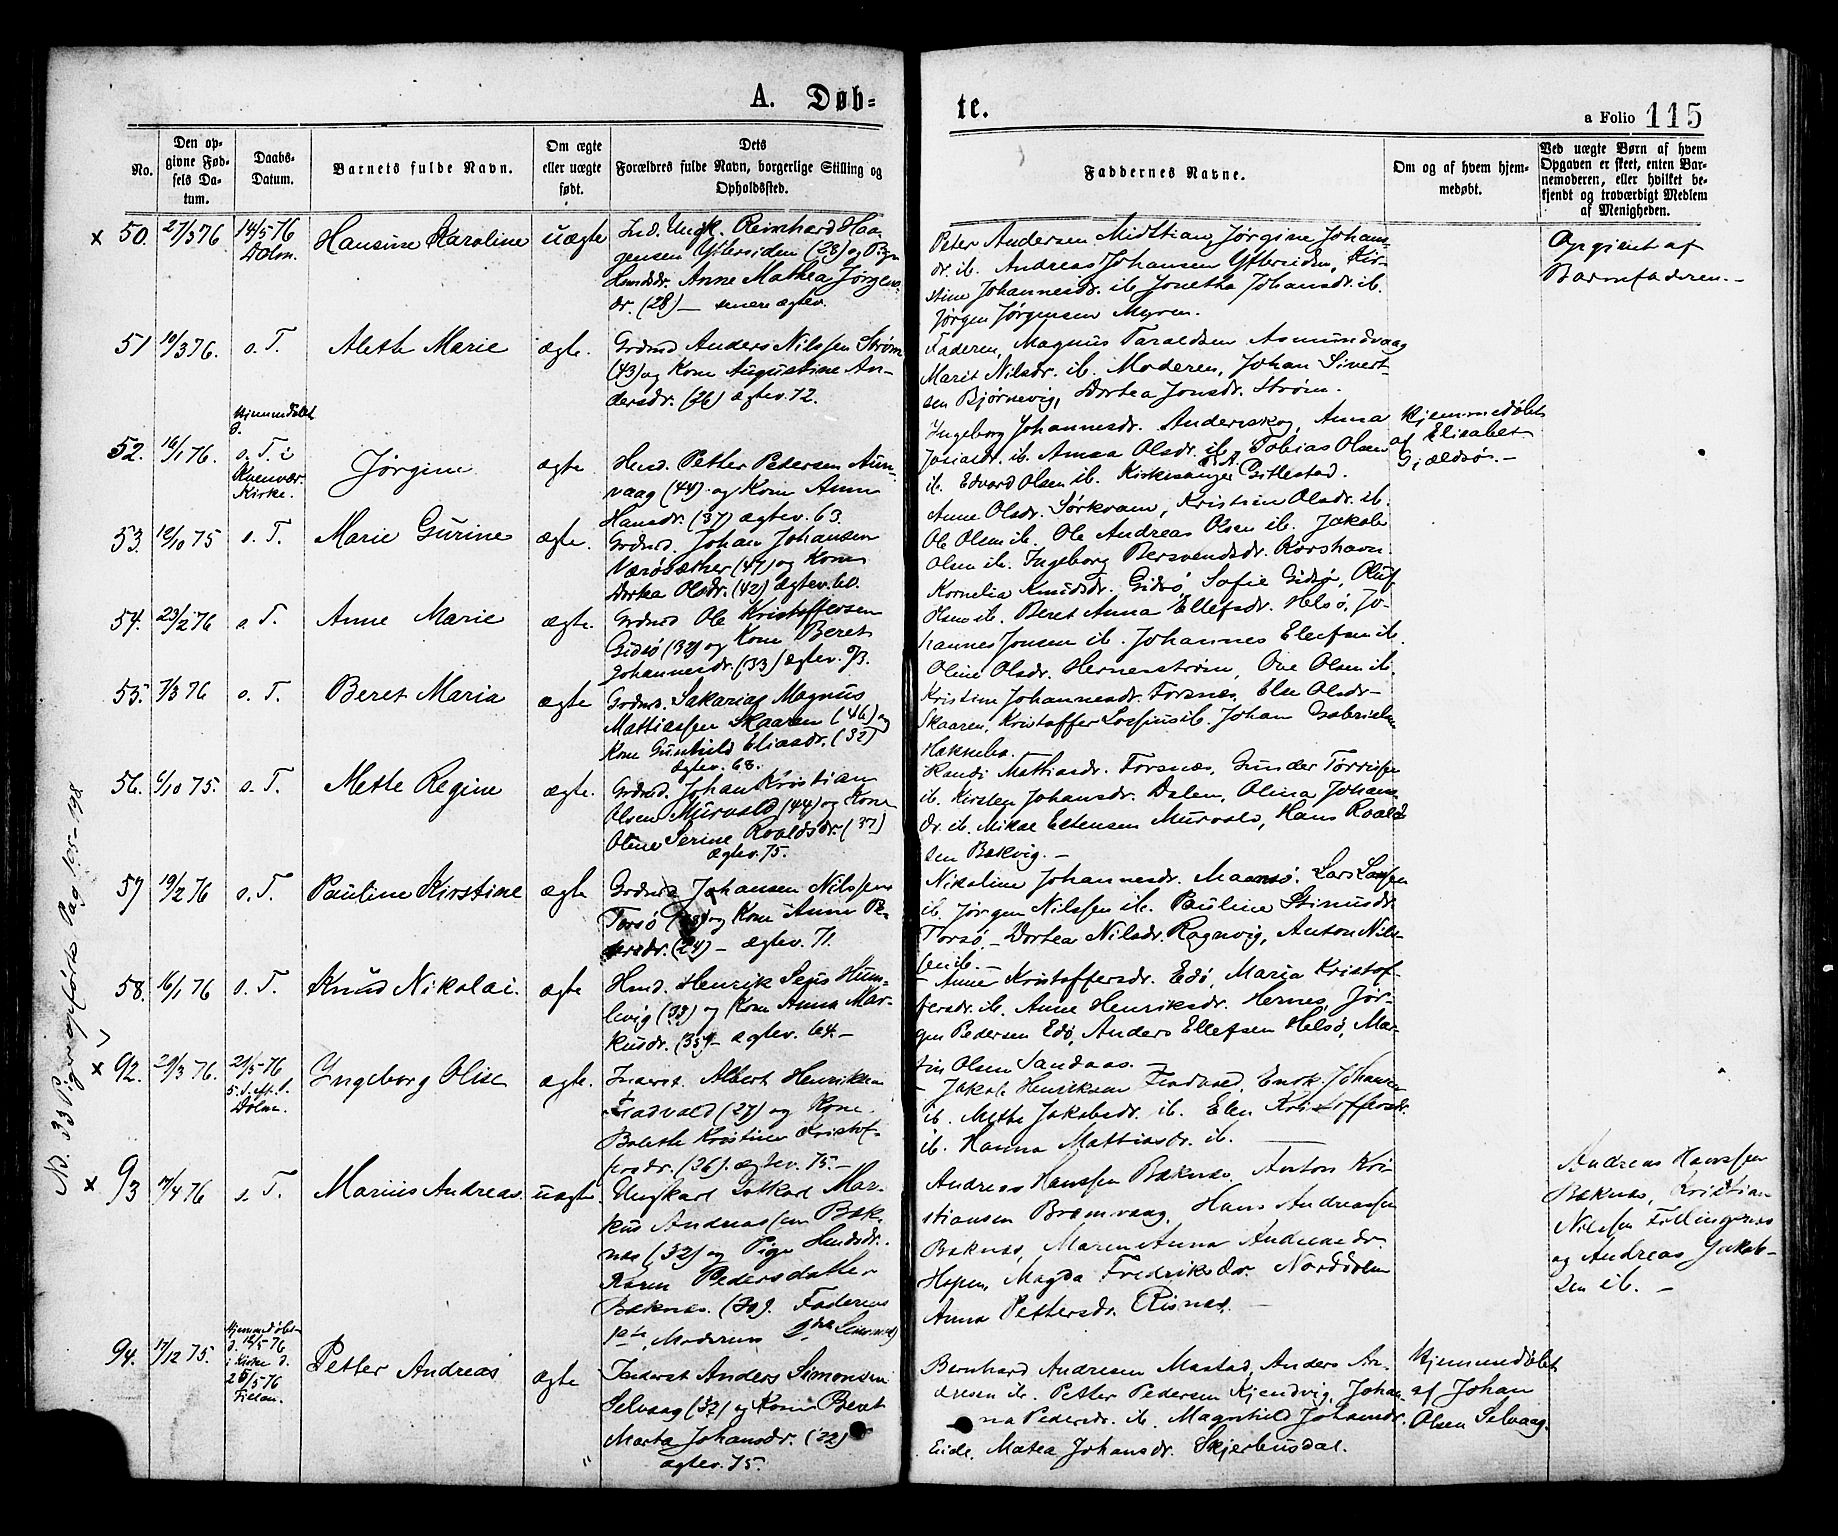 A. Døb=
te.
a Folio 115
No.
Den op-
givne Fød-
sels Da-
tum.
Daabs-
Datum.
Barnets fulde Navn.
Om ægte
eller uægte
født.
Dets
Forældres fulde Navn, borgerlige Stilling og
Opholdssted.
Faddernes Navne.
Om og af hvem hjem-
medøbt.
Ved uægte Børn af hvem
Opgaven er skeet, enten Bar-
nemoderen, eller hvilket be-
kjendt og troværdigt Medlem
af Menigheden.
x 50. 27/3 76 14/5 76
Dolm.
Hansine Karoline uægte
Ind. Ungk. Reinhard Haa-
gensen Yttersiden (28) og Pige
Anne Mathea Jørgens-
dr. (28) — senere ægtev.
Peter Andersen Midtian, Jørgine Johans-
dr. ib. Andreas Johansen Yttersiden, Kir-
stine Johannesdr. ib. Jonetha Johansdr. ib.
Jørgen Jørgensen Myren.
Opgivet af
Barnefaderen. —
51 19/3 76. s. T. Aleth Marie ægte.
Grdmd Anders Nilssen Strøm
(43) og Kone Augustine An-
dersdr. (26) ægtev. 72.
Faderen, Magnus Taraldsen Asmundvaag
Marit Nilsdr. ib. Moderen, Johan Sivert-
sen Bjørnevig, Dortea Jonsdr. Strøm.
52. 16/1 76. Hjemmedøbt
d.
s. T. i
Kvenvær
Kirke.
Jørgine ægte
Hmd. Petter Pedersen Aun-
vaag (44) og Kone Anne
Hansdr. (37) ægtev. 63.
Ingeborg Johannesdr. Anderskog, Anna
Josiasdr. ib. Anna Olsdr. ib. Tobias Olsen
ib. Edvard Olsen ib. Kirkesanger Gillestad.
Hjemmedøbt
af Elisabet
Gjældsø. —
53. 10/10 75 s. T. Marie Gurine ægte.
Grdmd. Johan Johansen
Værøsæther (47) og Kone
Dortea Olsdr. (42) ægtev. 60.
Anne Olsdr. Sørkvam, Kristine Olsdr. ib.
Ole Olsen ib. Ole Andreas Olsen ib. Jakob
Olsen ib. Ingeborg Bersvendsdr. Korshavn.
54. 23/2 76 s. T. Anne Marie ægte.
Grdmd Ole Kristoffersen
Gidsø (32) og Kone Beret
Johannesdr. (33) ægtev. 73.
Kornelia Knudsdr. Gidsø, Sofie Gidsø, Oluf
Olsen ib. Beret Anna Ellefsdr. Helsø, Jo-
hannes Jonsen ib. Johannes Ellefsen ib.
55. 7/3 76 s. T. Beret Maria ægte
Grdmd. Sakarias Magnus
Mattiassen Skaaren (46) og
Kone Gunhild Eliasdr. (32)
ægtev. 68.
Oline Olsdr. Hernesstrøm, Ove Olsen ib.
Kristine Johannesdr. Forsnes, Else Olsdr.
Skaaren, Kristoffer ib. Johan Gabrielsen
56. 6/10 75. s. T. Mette Regine ægte.
Grdmd. Johan Kristian
Olsen Murvold (44) og Kone
Oline Serine Roaldsdr. (37)
ægtev. 75.
Randi Mathiasdr. Forsnes, Gunder Torrisen
ib. Kirsten Johansdr. Dalen, Olina Johans-
dr. ib. Mikal Estensen Murvold, Hans Roald-
sen Bekvig. —
57 19/2 76 s. T. Pauline Kirstine ægte
Grdmd Johansen Nilssen
Torsø og Kone Anne Pe-
dersdr. (24) — ægtev. 71.
Nikoline Johannesdr. Maansø. Lars Larsen
ib. Jørgen Nilssen ib. Pauline dr.
Torsø. — Dortea Nilsdr. Ragnvig, Anton Nils-
sen ib. —
58. 16/1 76 s. T. Knud Nikolai. ægte
Hmd. Henrik Hum-
levig (38) og Kone Anna Mar-
kusdr. (35) — ægtev. 64. —
Anne Kristoffersdr. Edø, Maria Kristof-
fersdr. ib. Anne Henriksdr. Hernes, Jør-
gen Pedersen Edø, Anders Ellefsen Helsø, Mar-
tin Olsen Sandaas. —
x 92. 29/3 76. 21/5 76
Dolm.
Ingeborg Olise ægte.
Inderst. Albert Henriksen
Fradvald (27) og Kone
Boleth Kristine Kristof-
fersdr. (26). ægtev. 75. —
— Jakob Henriksen Fradvold, Enok Johansen
ib. Mette Jakobsdr. ib. Elen Kristoffersdr.
ib. Hanna Mattiasdr. ib.
x 93 17/4 76 s. T. Marius Andreas uægte
Ungkarl Mar-
kus Andreassen Bæk-
næs (32) og Pige
Karen Pedersdatter
Bæknæs. (30). Faderens
1ste, Moderens 2den
Andreas Hanssen Bæknæs. Anton Kri-
stiansen Bremvaag, Hans Andreassen
Bæknæs, Maren Anna Andreasdr.
Hopen, Magda Fredriksdr. Norddolm
Anna Pettersdr. Risnæs. —
Andreas Hanssen
Bæknæs, Kristian
Nilssen Fillingsnes
og Andreas Jakob-
sen ib. —
94. 17/12 75. Hjemmedøbt
d. 12/5 76
i Kirke d.
28/5 76
Fillan.
Petter Andreas ægte
Inderst Anders Simonsen
Selvaag (32) og Kone Beret
Marta Johansdr. (22)
ægtev. 75.
Bernhard Andresen Mastad, Anders An-
dresen ib. Petter Pedersen Kjendvig, Johan-
na Pedersdr. ib. Magnhild Johansdr.
Eide, Matea Johansdr. Skjerbusdal.
Hjemmedøbt
af Johan
Olsen Selvaag.
No. 33 Pag 105-198